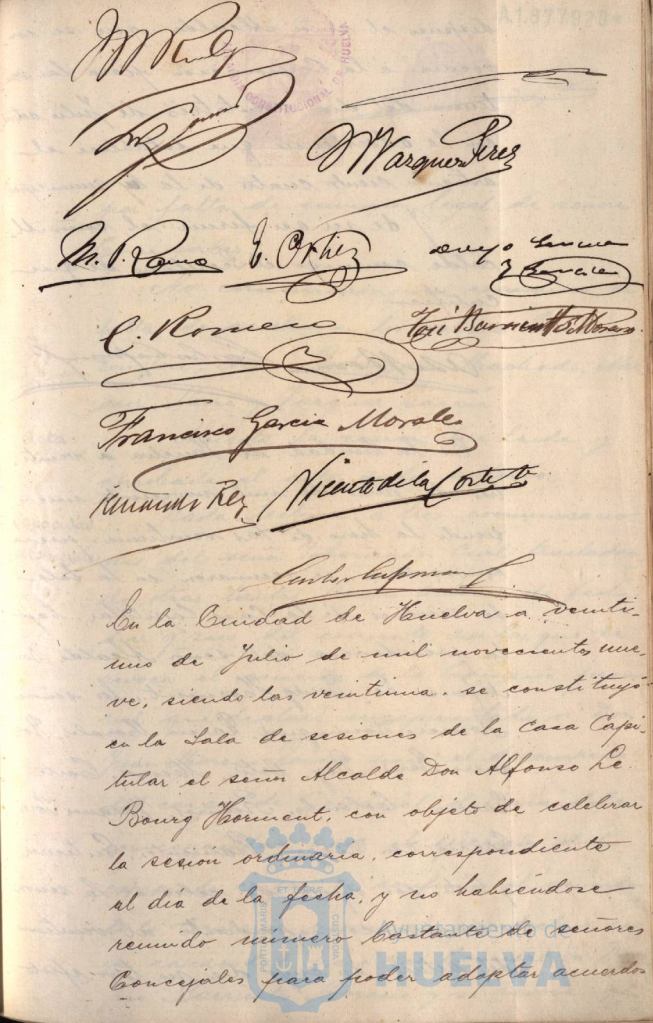 A1.877.920*
CONSTITUCIONAL DE HUELVA
Marquez Perez
M. P. Romo
E. Ortiz
C. Romero
José Barrientos Moreno
Francisco Garcia Morales
Fernando Rey
Vicente de la Corte
En la Ciudad de Huelva a veinti-
uno de Julio de mil novecientos nue-
ve, siendo las veintiuna, se constituyó
en la Sala de sesiones de la Casa Capi-
tular el señor Alcalde Don Alfonso Le
Bourg Horment, con objeto de celebrar
la sesión ordinaria, correspondiente
al dia de la fecha, y no habiéndose
reunido número bastante de señores
Concejales para poder adoptar acuerdos
Ayuntamiento de
HUELVA